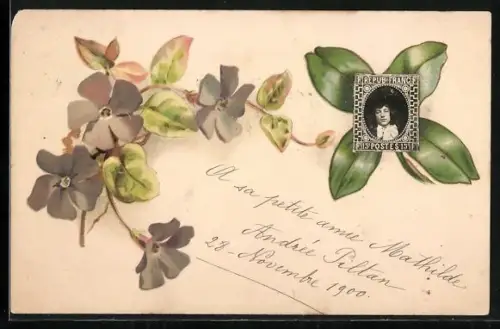 REPUB. FRANC.
15c POSTES 15c
A sa petite amie Mathilde
Andrée Piltan
28 Novembre 1900.